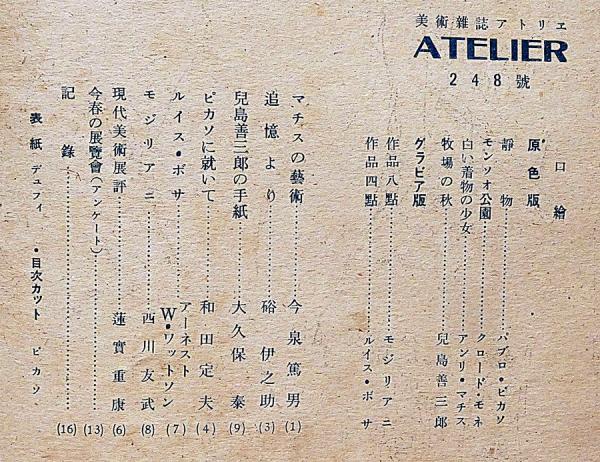 美術雜誌アトリエ
ATELIER
248號
口繪
原色版
靜物……………パブロ・ピカソ
モンソオ公園……………クロード・モネ
白い着物の少女……………アンリ・マチス
牧場の秋……………兒島善三郎
グラビア版
作品八點……………モジリアニ
作品四點……………ルイス・ボサ
マチスの藝術……………今泉篤男(1)
追憶より……………硲伊之助(3)
兒島善三郎の手紙……………大久保泰(9)
ピカソに就いて……………和田定夫(4)
ルイス・ボサ……………アーネスト W・ワットソン(7)
モジリアニ……………西川友武(8)
現代美術展評……………蓮實重康(6)
今春の展覽會(アンケート)……………(13)
記錄……………(16)
表紙 デュフィ ・目次カット ピカソ